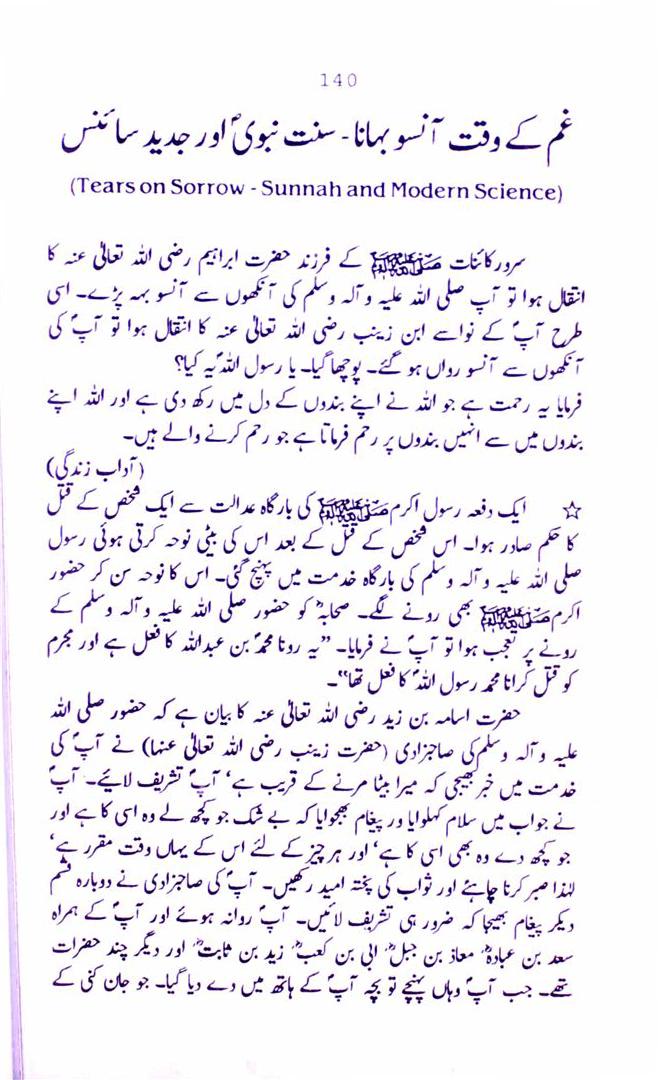 140
غم کے وقت آنسو بہانا۔ سنت نبویؐ اور جدید سائنس
(Tears on Sorrow - Sunnah and Modern Science)
سرور کائنات ﷺ کے فرزند حضرت ابراہیم رضی اللہ تعالیٰ عنہ کا
انتقال ہوا تو آپ صلی اللہ علیہ و آلہ وسلم کی آنکھوں سے آنسو بہہ پڑے۔ اسی
طرح آپؐ کے نواسے ابن زینب رضی اللہ تعالیٰ عنہ کا انتقال ہوا تو آپؐ کی
آنکھوں سے آنسو رواں ہو گئے۔ پوچھا گیا۔ یا رسول اللہؐ یہ کیا؟
فرمایا یہ رحمت ہے جو اللہ نے اپنے بندوں کے دل میں رکھ دی ہے اور اللہ اپنے
بندوں میں سے انہیں بندوں پر رحم فرماتا ہے جو رحم کرنے والے ہیں۔
(آداب زندگی)
☆ ایک دفعہ رسول اکرم ﷺ کی بارگاہ عدالت سے ایک شخص کے قتل
کا حکم صادر ہوا۔ اس شخص کے قتل کے بعد اس کی بیٹی نوحہ کرتی ہوئی رسول
صلی اللہ علیہ و آلہ وسلم کی بارگاہ خدمت میں پہنچ گئی۔ اس کا نوحہ سن کر حضور
اکرم ﷺ بھی رونے لگے۔ صحابہؓ کو حضور صلی اللہ علیہ و آلہ وسلم کے
رونے پر تعجب ہوا تو آپؐ نے فرمایا۔ ”یہ رونا محمدؐ بن عبداللہ کا فعل ہے اور مجرم
کو قتل کرانا محمد رسول اللہؐ کا فعل تھا“۔
حضرت اسامہ بن زید رضی اللہ تعالیٰ عنہ کا بیان ہے کہ حضور صلی اللہ
علیہ و آلہ وسلم کی صاحبزادی (حضرت زینب رضی اللہ تعالیٰ عنہا) نے آپؐ کی
خدمت میں خبر بھیجی کہ میرا بیٹا مرنے کے قریب ہے‘ آپؐ تشریف لائیے۔ آپؐ
نے جواب میں سلام کہلوایا ور پیغام بھجوایا کہ بے شک جو کچھ لے وہ اسی کا ہے اور
جو کچھ دے وہ بھی اسی کا ہے‘ اور ہر چیز کے لئے اس کے یہاں وقت مقرر ہے‘
لہٰذا صبر کرنا چاہئے اور ثواب کی پختہ امید رکھیں۔ آپؐ کی صاحبزادی نے دوبارہ قسم
دیکر پیغام بھیجا کہ ضرور ہی تشریف لائیں۔ آپؐ روانہ ہوئے اور آپؐ کے ہمراہ
سعد بن عبادہؓ‘ معاذ بن جبلؓ‘ ابی بن کعبؓ‘ زید بن ثابتؓ اور دیگر چند حضرات
تھے۔ جب آپؐ وہاں پہنچے تو بچہ آپؐ کے ہاتھ میں دے دیا گیا۔ جو جان کنی کے